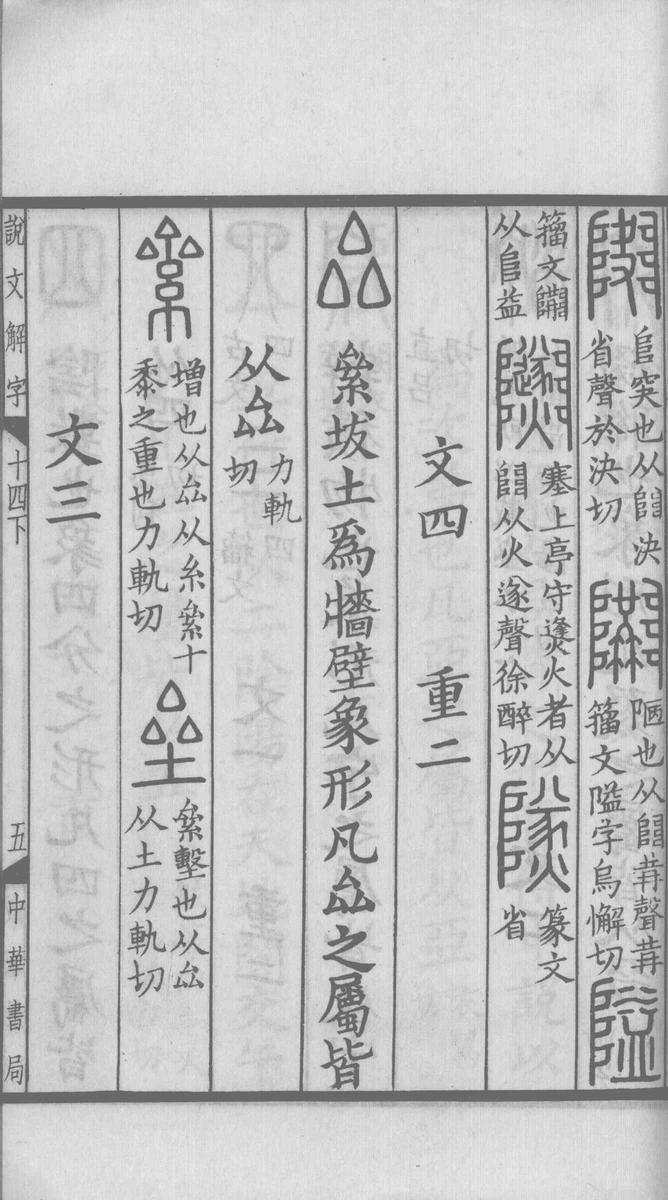 𨸏突也从𨺅決
省聲於決切
陋也从𨺅𦮙聲𦮙
籒文隘字烏懈切
隘
籒文
从𨸏益
塞上亭守㷭火者从
𨺅从火遂聲徐醉切
篆文
省
文四 重二
厽
絫坺土爲牆壁象形凡厽之屬皆
从厽
力軌
切
絫
增也从厽从糸絫十
黍之重也力軌切
垒
絫墼也从厽
从土力軌切
文三
說文解字
十四下
五
中華書局